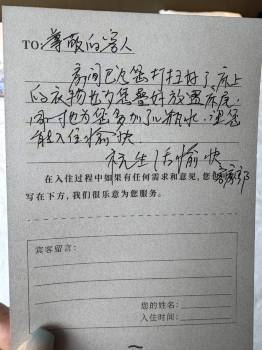 TO:尊敬的客人
房间已为您打扫好了,床上
的衣物也为您叠好放置床尾,
同时也为您多加了几瓶水,望您
能入住愉快
祝生活愉快
客房部
在入住过程中如果有任何需求和意见,您
写在下方,我们很乐意为您服务。
宾客留言:
您的姓名:
入住时间: